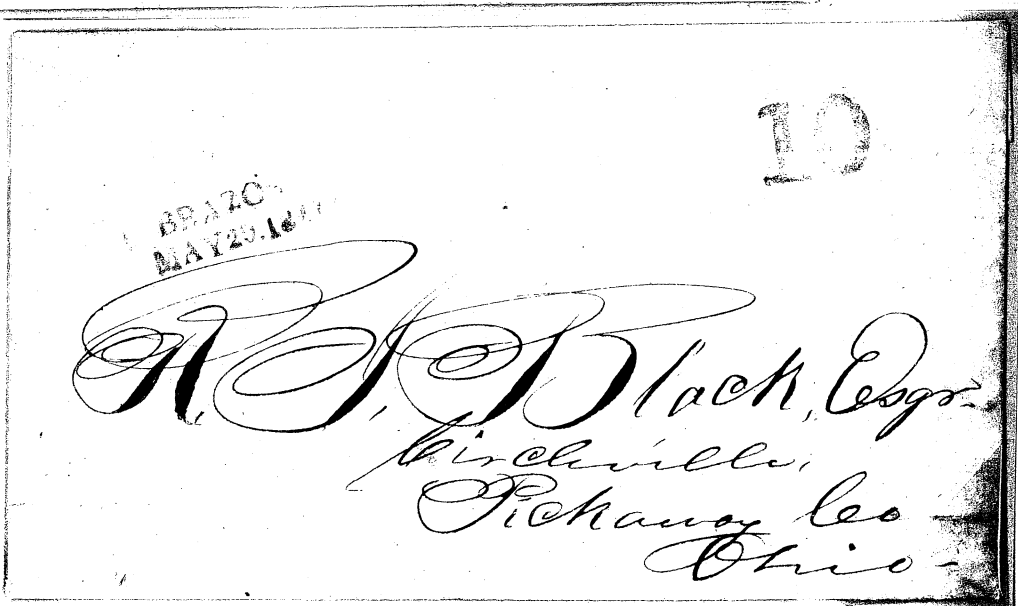 10
BRAZO
MAY 29.18
R. S. Black, Esqr.
Circleville,
Pickaway Co
Ohio-